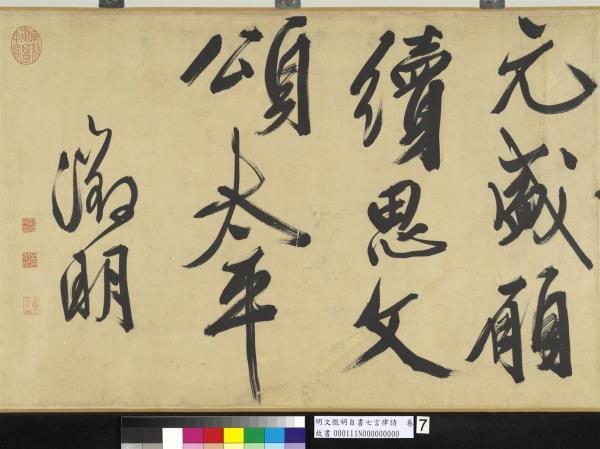 元盛願
續思文
頌太平
徵明
明文徵明自書七言律詩　卷
故書 000111N000000000
7